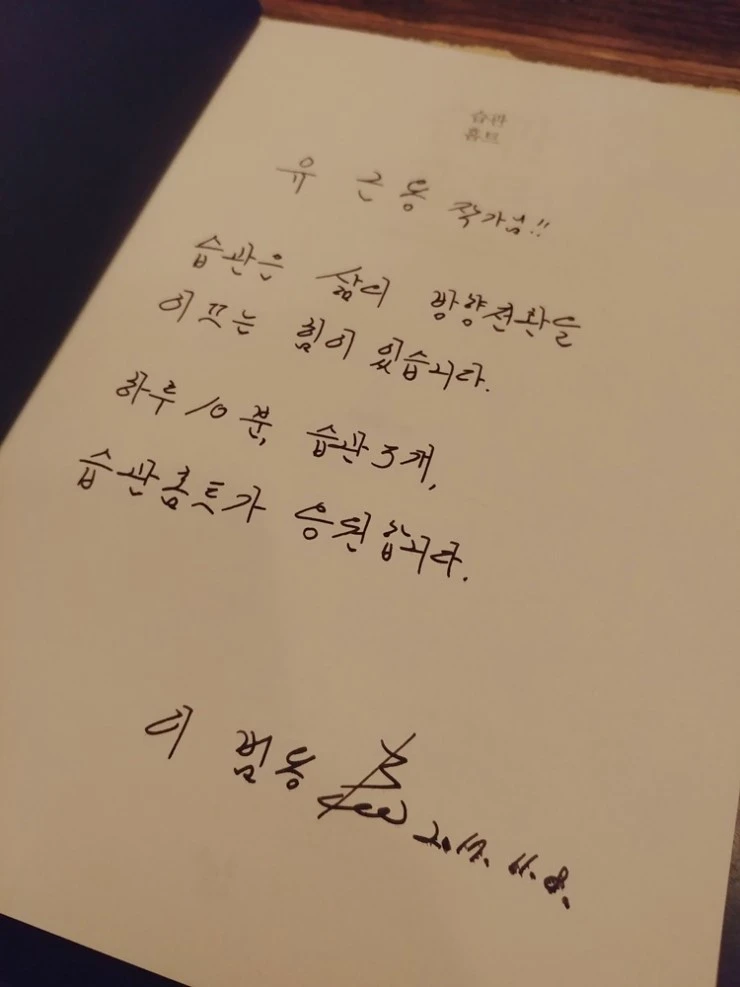 습관
홈트
유 근용 작가님!!
습관은 삶의 방향전환을
이끄는 힘이 있습니다.
하루 10분, 습관 3개,
습관홈트가 응원합니다.
이 범용 Lee 2.17. 11. 8.